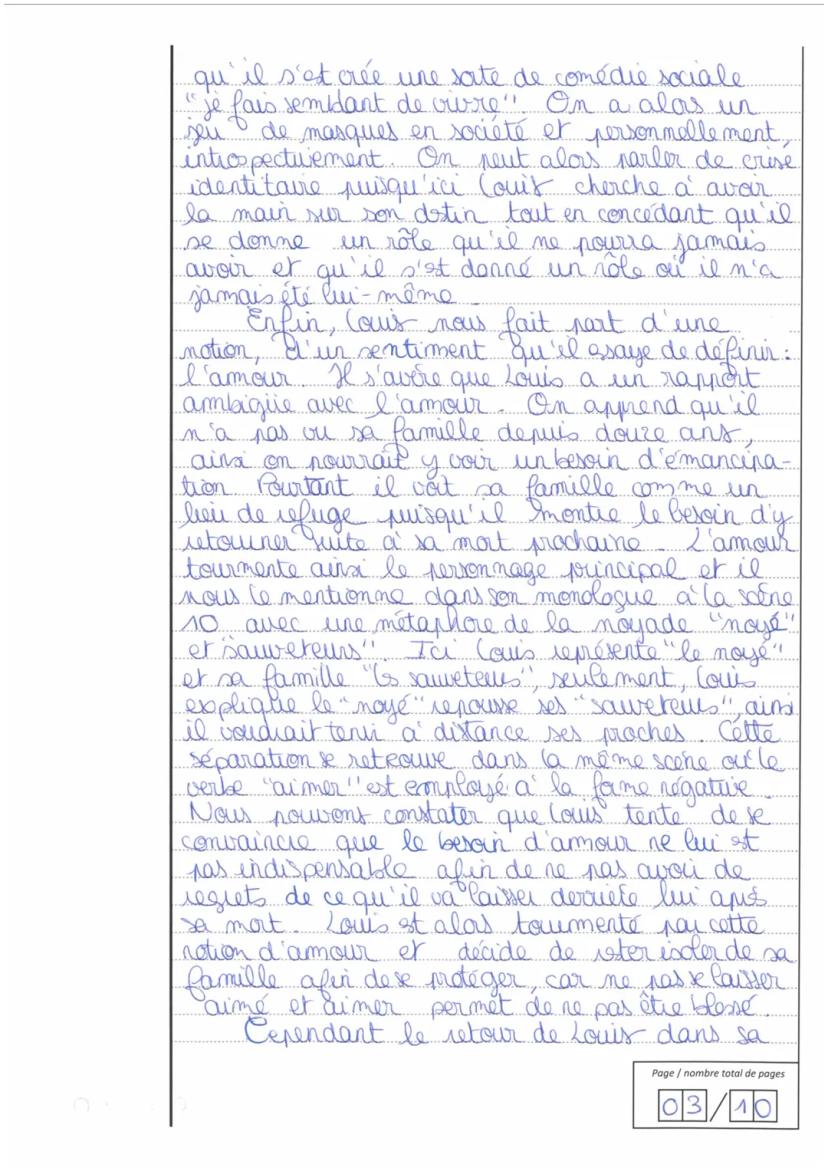 qu'il s'est crée une sorte de comédie sociale
"je fais semblant de vivre". On a alors un
jeu de masques en société et personnellement,
introspectivement. On peut alors parler de crise
identitaire puisqu'ici Louis cherche à avoir
la main sur son destin tout en concédant qu'il
se donne un rôle qu'il ne pourra jamais
avoir et qu'il s'est donné un rôle où il n'a
jamais été lui-même.
Enfin, Louis nous fait part d'une
notion, d'un sentiment qu'il essaye de définir :
l'amour. Il s'avère que Louis a un rapport
ambigüe avec l'amour. On apprend qu'il
n'a pas vu sa famille depuis douze ans,
ainsi on pourrait y voir un besoin d'émancipa-
tion. Pourtant il voit sa famille comme un
lieu de refuge puisqu'il montre le besoin d'y
retourner suite à sa mort prochaine. L'amour
tourmente ainsi le personnage principal et il
nous le mentionne dans son monologue à la scène
10 avec une métaphore de la noyade "noyé"
et "sauveteurs". Ici Louis représente "le noyé"
et sa famille "les sauveteurs", seulement, Louis
explique le "noyé" repousse ses "sauveteurs", ainsi
il voudrait tenir à distance ses proches. Cette
séparation se retrouve dans la même scène où le
verbe "aimer" est employé à la forme négative.
Nous pouvons constater que Louis tente de se
convaincre que le besoin d'amour ne lui est
pas indispensable afin de ne pas avoir de
regrets de ce qu'il va laisser derrière lui après
sa mort. Louis est alors tourmenté par cette
notion d'amour et décide de rester isoler de sa
famille afin de se protéger, car ne pas se laisser
aimé et aimer permet de ne pas être blessé.
Cependant le retour de Louis dans sa
Page / nombre total de pages
03/10